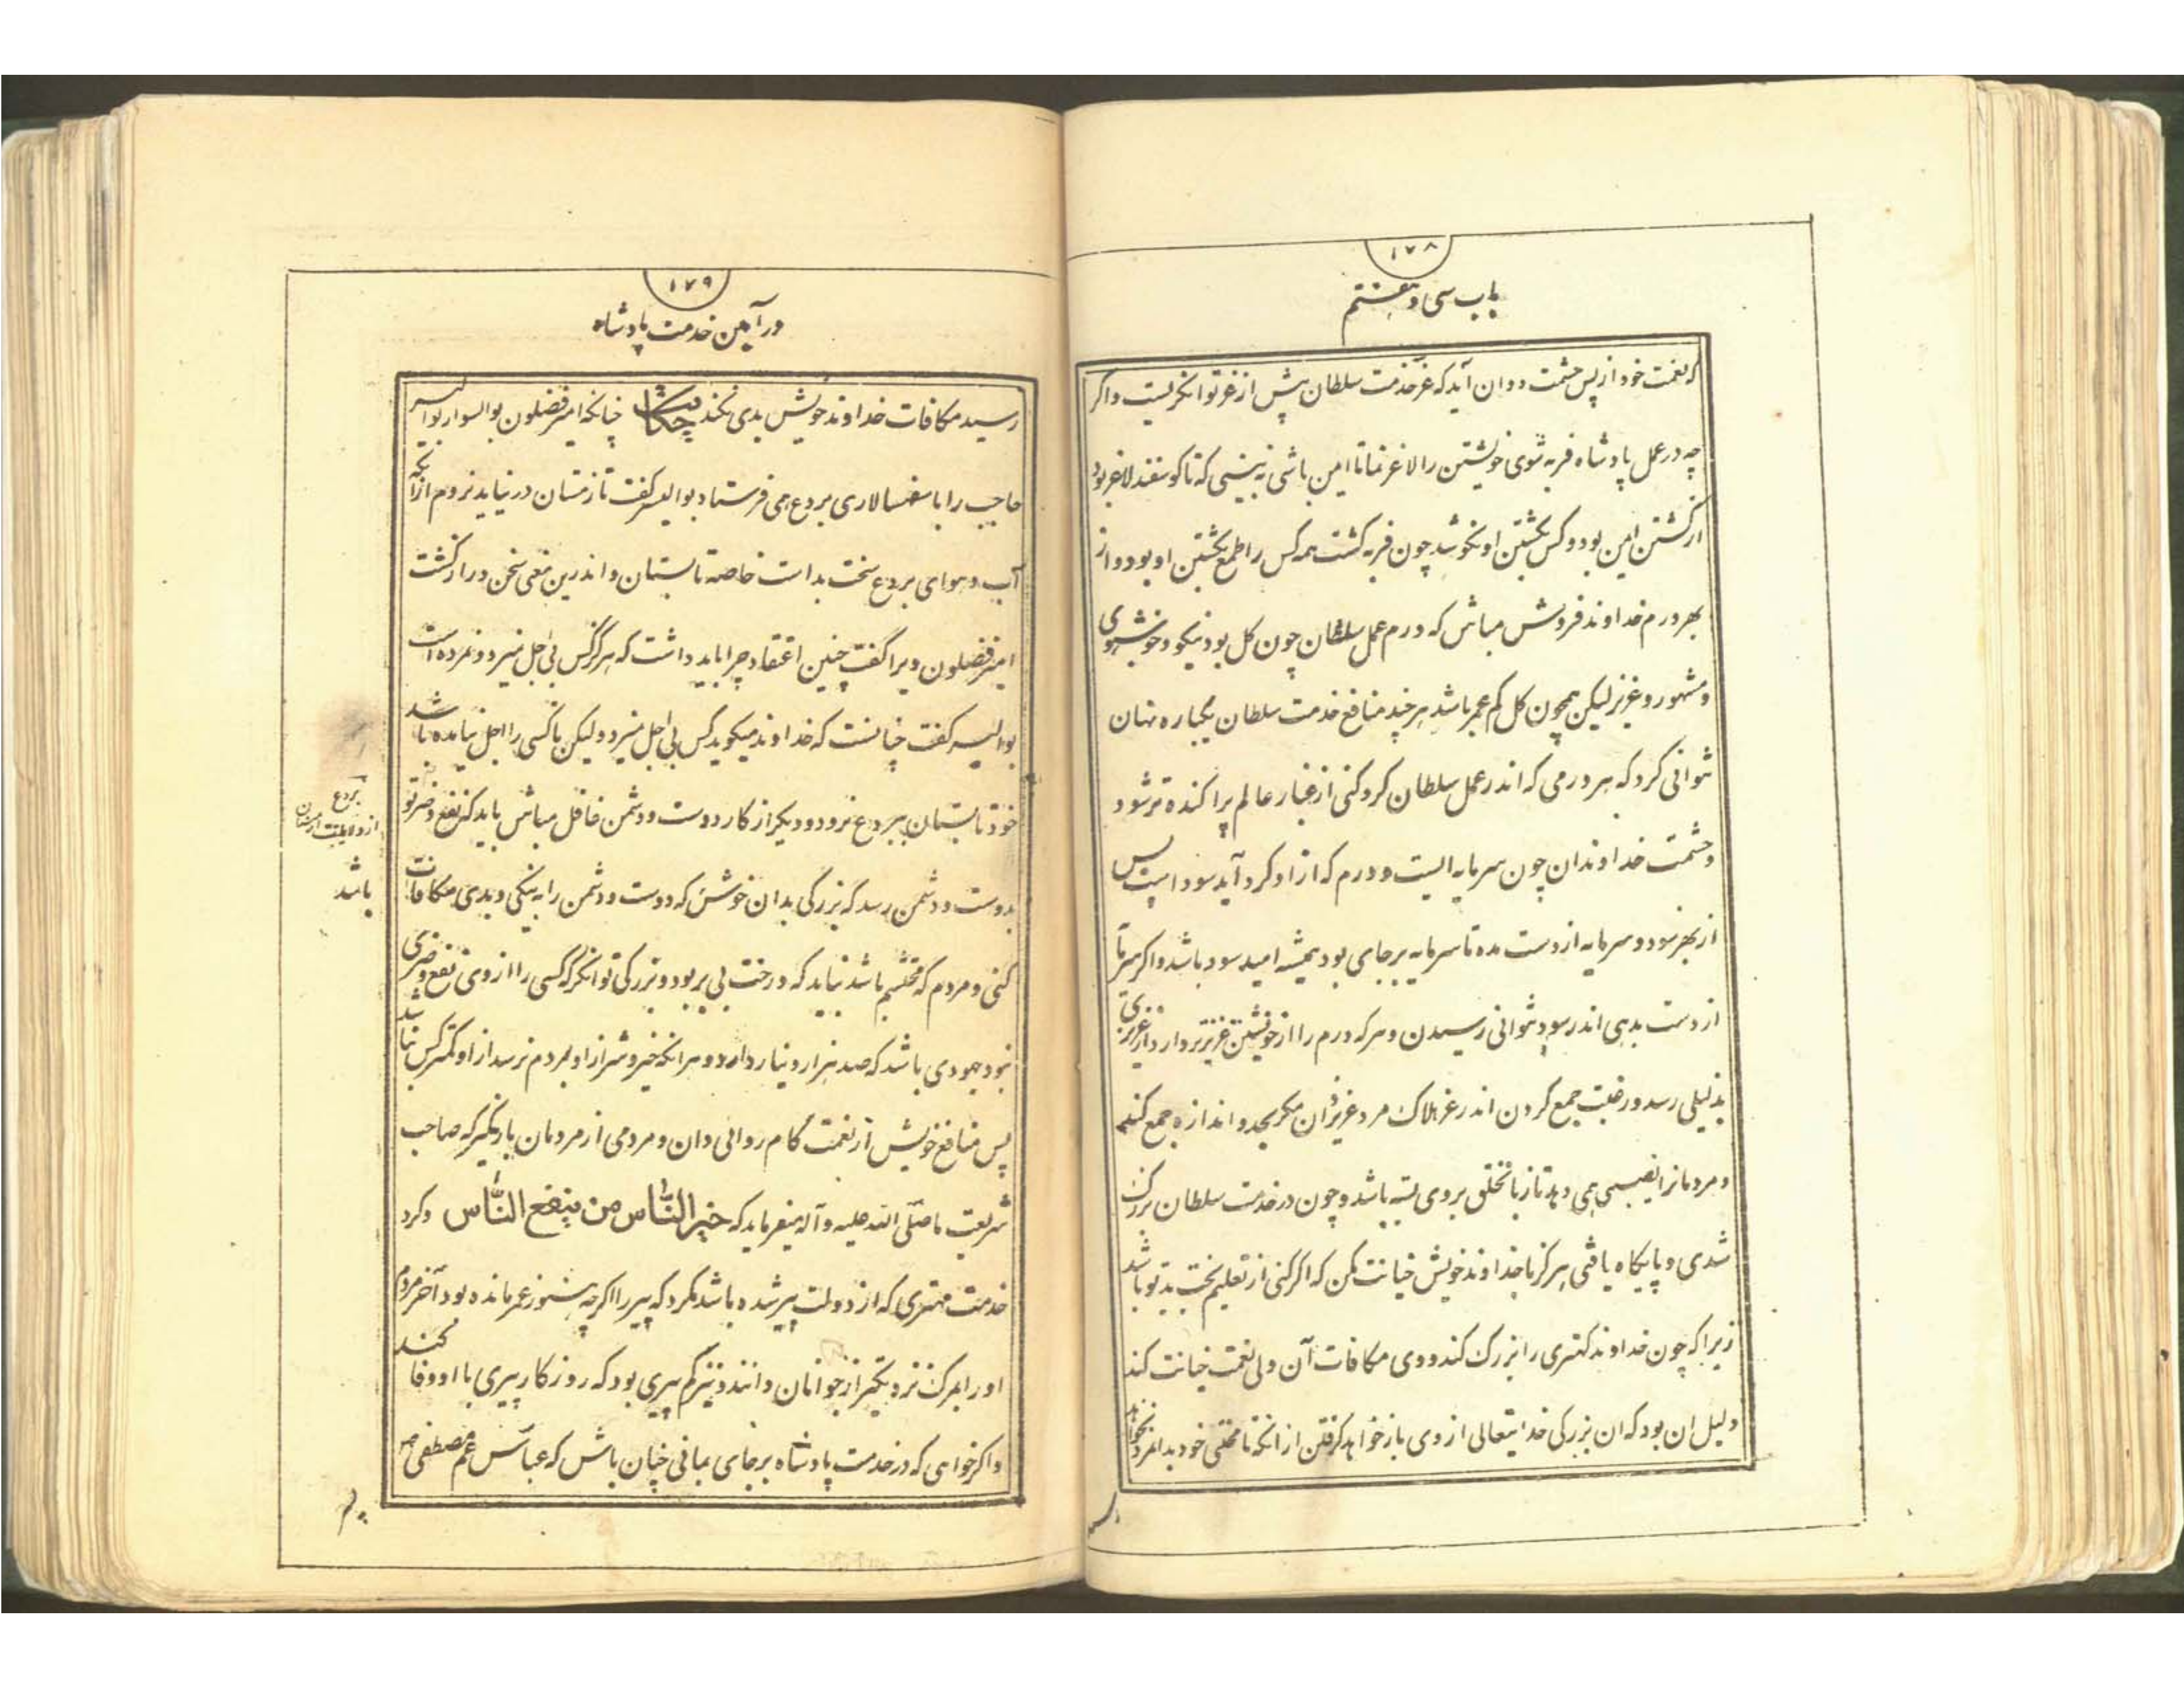 ۱۷۸
باب سی و هفتم
که نعمت خود از پس حشمت دوان آید که عز خدمت سلطان پیش از عز توانگریست و اگر
چه در عمل پادشاه فربه شوی خویشتن را لاغر نما تا ایمن باشی نه بینی که تا گوسفند لاغر بود
از کشتن ایمن بود و کس بکشتن او نکوشد چون فربه کشت همه کس را طمع بکشتن او بود و از
بهر درم خداوند فروش مباش که درم عمل سلطان چون کل بود نیکو و خوشبوی
و مشهور و عزیز لیکن همچون کل کم عمر باشد هر چند منافع خدمت سلطان یکباره نهان
نتوانی کرد که هر درمی که اندر عمل سلطان گرد کنی از غبار عالم پراکنده تر شود
و حشمت خداوندان چون سرمایه ایست و درم که از او گرد آید سود است پس
از بهر سود و سرمایه از دست مده تا سرمایه بر جای بود همیشه امید سود باشد و اگر سرمایه
از دست بدهی اندر سود نتوانی رسیدن و هر که درم را از خویشتن عزیزتر دارد از عزیزی
بذلیلی رسد و رغبت جمع کردن اندر عز هلاک مرد عزیز دان مگر بحد و اندازه جمع کند
و مردمانرا نصیبی می دهد تا زبان خلق بر وی بسته باشد و چون در خدمت سلطان بزرک
شدی و پایگاه یافتی هرگز با خداوند خویش خیانت مکن که اگر کنی از تعلیم بخت بد تو باشد
زیرا که چون خداوند کهتری را بزرک کند و وی مکافات آن ولی نعمت خیانت کند
دلیل ان بود که ان بزرگی خدایتعالی از وی باز خواهد گرفتن از انکه تا محنتی خود بدانمرد نخواهد
۱۷۹
در آیین خدمت پادشاه
رسید مکافات خداوند خویش بدی نکند حکایت چنانکه امیر فضلون بوالسوار بوالیسر
حاجب را باسفهسالاری بردع می فرستاد بوالیسر گفت تا زمستان در نیاید نروم از آنکه
آب و هوای بردع سخت بد است خاصه تابستان و اندرین معنی سخن دراز گشت
امیر فضلون ویرا گفت چنین اعتقاد چرا باید داشت که هرگز کس بی اجل نمیرد و نمرده است
بوالیسر گفت چنانست که خداوند میگوید کس بی اجل نمیرد و لیکن تا کسی را اجل نیامده باشد
خود تابستان ببردع نرود و دیگر از کار دوست و دشمن غافل مباش باید که نفع و ضر تو
بدوست و دشمن رسد که بزرگی بدان خوش که دوست و دشمن را به نیکی و بدی مکافات
کنی و مردم که محتشم باشد نباید که درخت بی بر بود و بزرگی توانگر که کسی را از وی نفع و ضری
نبود جهودی باشد که صد هزار دینار دارد و هر انکه خیر و شر از او بمردم نرسد از او کمتر کس نباشد
پس منافع خویش از نعمت کام روائی دان و مردمی از مردمان باز مگیر که صاحب
شریعت ما صلی الله علیه و آله میفرماید که خیر الناس من ینفع الناس و گرد
خدمت مهتری که از دولت پیر شده باشد مگرد که پیر را اگر چه هنوز عمر مانده بود آخر مردم
او را بمرک نزدیکتر از جوانان دانند و نیز کم پیری بود که روزگار پیری با او وفا کند
و اگر خواهی که در خدمت پادشاه بر جای بمانی چنان باش که عباس عم مصطفی ص
بردع
از ولایت ارمنستان
باشد